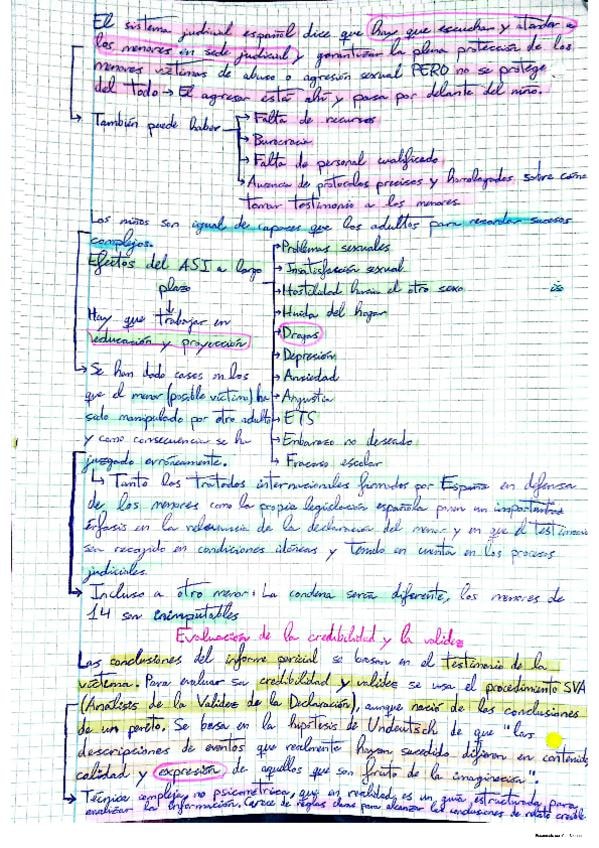 El sistema judicial español dice que hay que escuchar y atender a
los menores en sede judicial y garantizar la plena protección de los
menores víctimas de abuso o agresión sexual PERO no se protege
del todo → El agresor está ahí y pasa por delante del niño.
También puede haber → Falta de recursos
→ Burocracia
→ Falta de personal cualificado
→ Ausencia de protocolos precisos y homologados sobre como
tomar testimonio a los menores.
Los niños son igual de capaces que los adultos para recordar sucesos
complejos.
Efectos del ASI a largo
plazo
→ Problemas sexuales
→ Insatisfacción sexual
→ Hostilidad hacia el otro sexo
→ Huida del hogar
→ Drogas
→ Depresión
→ Ansiedad
→ Angustia
→ ETS
→ Embarazo no deseado
→ Fracaso escolar
Hay que trabajar en
educación y proyección
→ Se han dado casos en los
que el menor (posible víctima) ha
sido manipulado por otro adulto
y como consecuencia se ha
juzgado erróneamente.
↳ Tanto los tratados internacionales firmados por España en defensa
de los menores como la propia legislación española ponen un importante
énfasis en la relevancia de la declaración del menor y en que el testimonio
sea recogido en condiciones idóneas y tenido en cuenta en los procesos
judiciales.
→ Incluso a otro menor: La condena sería diferente, los menores de
14 son inimputables
Evaluación de la credibilidad y la validez
Las conclusiones del informe pericial se basan en el testimonio de la
víctima. Para evaluar su credibilidad y validez se usa el procedimiento SVA
(Análisis de la Validez de la Declaración), aunque nació de las conclusiones
de un perito. Se basa en la hipótesis de Undeutsch de que "las
descripciones de eventos que realmente hayan sucedido difieren en contenido,
calidad y expresión de aquellos que son fruto de la imaginación".
→ Técnica compleja, no psicométrica, que en realidad es un guía estructurada para
analizar la información. Carece de reglas claras para alcanzar las conclusiones de relato creíble